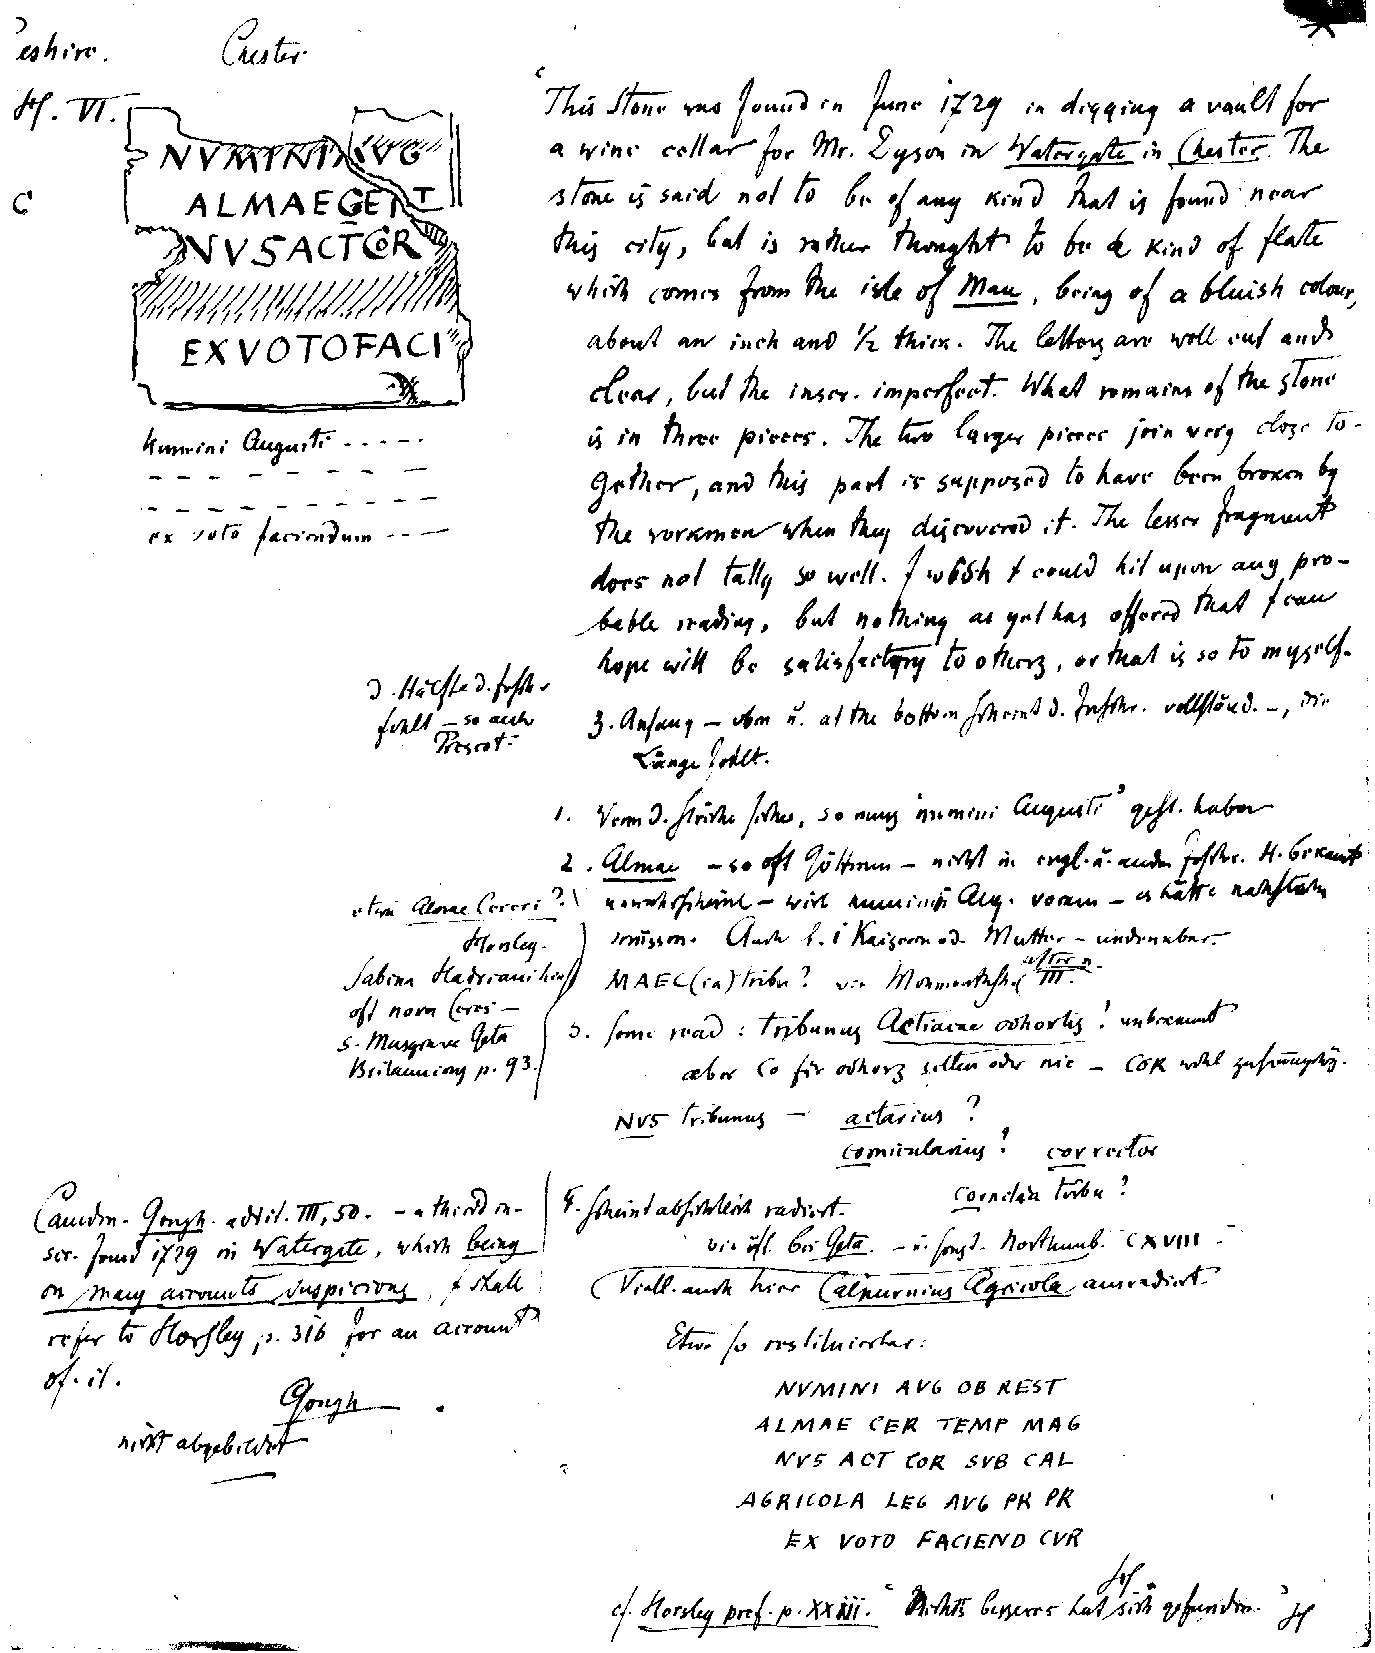 eshire. Chester
H. VI.
C
NVMINI AVG
ALMAEGENT
NVSACTCOR
EXVOTOFACI
numini Augusti - - - - -
ex voto faciendum - - —
This Stone was found in June 1729 in digging a vault for
a wine cellar for Mr. Dyson in Watergate in Chester. The
stone is said not to be of any kind that is found near
this city, but is rather thought to be a kind of slate
which comes from the isle of Man, being of a bluish colour,
about an inch and 1/2 thick. The letters are well cut and
clear, but the inscr. imperfect. What remains of the stone
is in three pieces. The two larger pieces join very close to-
gether, and this part is supposed to have been broken by
the workmen when they discovered it. The lesser fragment
does not tally so well. I wish I could hit upon any pro-
bable reading, but nothing as yet has offered that I can
hope will be satisfactory to others, or that is so to myself.
d. Hälfte d. Inschr.
fehlt — so auch
Prescot.
3. Anfang — oben u. at the bottom scheint d. Inschr. vollständ. —, die
Länge fehlt.
1. Wenn d. Stücke sicher, so muss "numini Augusti" gest. haben
2. Almae — so oft Göttinnen — nicht in engl. u. andern Inschr. H. bekannt
unwahrscheinl — weil numini Aug. voran — es hätte nachstehn
müssen. Auch b. i Kaiserin od. Mutter — undenkbar.
MAEC(ia) tribu? wie Monmouthsh. III.
etwa Almae Cereri?
Horsley.
Sabina Hadriani hiess
oft nova Ceres —
s. Musgrave Geta
Britannicus p. 93.
3. Some read: tribunus Actiacae cohortis? unbekannt
aber Co für cohors selten oder nie — COR wohl
NVS tribunus — actarius?
cornicularius? corrector
cornelia tribu?
4. Scheint absichtlich radiert.
wie öft. bei Geta. — u. sonst. Northumb. CXVIII -
(Viell. auch hier Calpurnius Agricola ausradiert.
Camden. Gough. addit. III, 50. — a third in-
scr. found 1729 in Watergate, which being
on many accounts suspicious, I shall
refer to Horsley p. 316 for an account
of it.
Gough
nicht abgebildet
Etwa so restituierbar:
NVMINI AVG OB REST
ALMAE CER TEMP MAG
NVS ACT COR SVB CAL
AGRICOLA LEG AVG PR PR
EX VOTO FACIEND CVR
cf. Horsley pref. p. XXIII. "Nichts besseres hat sich gefunden." H